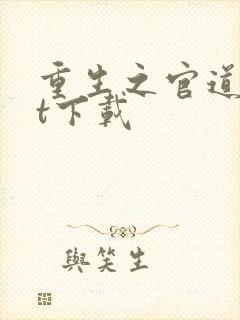 重生之官道
t下載
與笑生